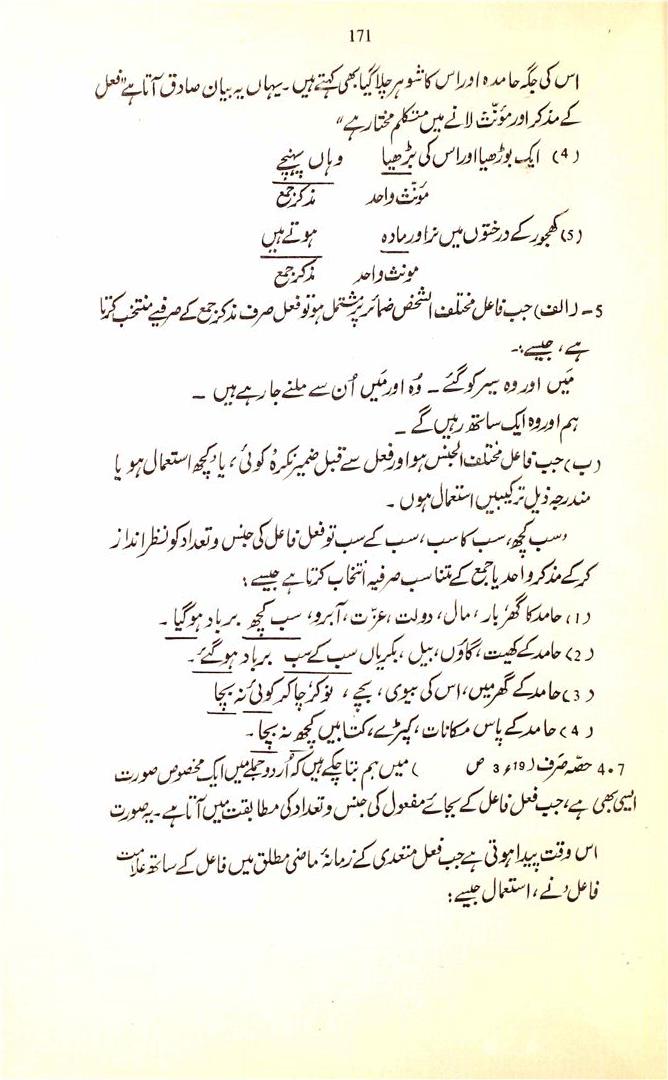 171
اس کی جگہ حامدہ اور اس کا شوہر چلا گیا بھی کہتے ہیں۔ یہاں یہ بیان صادق آتا ہے "فعل
کے مذکر اور مؤنّث لانے میں متکلم مختار ہے"
(4) ایک بوڑھیا اور اس کی بڑھیا وہاں پہنچے
مؤنّث واحد مذکر جمع
(5) کھجور کے درختوں میں نر اور مادہ ہوتے ہیں
مونث واحد مذکر جمع
5۔ (الف) جب فاعل مختلف الشخص ضمائر پر مشتمل ہو تو فعل صرف مذکر جمع کے صرفیے منتخب کرتا
ہے، جیسے:۔
مَیں اور وہ سیر کو گئے ۔ وُہ اور مَیں اُن سے ملنے جا رہے ہیں ۔
ہم اور وہ ایک ساتھ رہیں گے ۔
(ب) جب فاعل مختلف الجنس ہو اور فعل سے قبل ضمیر نکرہ 'کوئی' یا 'کچھ' استعمال ہو یا
مندرجہ ذیل ترکیبیں استعمال ہوں ۔
'سب کچھ، سب کا سب، سب کے سب تو فعل فاعل کی جنس و تعداد کو نظر انداز
کر کے مذکر واحد یا جمع کے متناسب صرفیہ انتخاب کرتا ہے جیسے:
(1) حامد کا گھر بار، مال، دولت، عزّت، آبرو، سب کچھ برباد ہو گیا ۔
(2) حامد کے کھیت، گاؤں، بیل، بکریاں سب کے سب برباد ہو گئے ۔
(3) حامد کے گھر میں، اس کی بیوی، بچے، نوکر چاکر کوئی نہ بچا
(4) حامد کے پاس مکانات، کپڑے، کتابیں کچھ نہ بچا ۔
4.7 حصّہ صَرف (19ء 3 ص ) میں ہم بتا چکے ہیں کہ اُردو جملے میں ایک مخصوص صورت
ایسی بھی ہے، جب فعل فاعل کے بجائے مفعول کی جنس و تعداد کی مطابقت میں آتا ہے۔ یہ صورت
اس وقت پیدا ہوتی ہے جب فعل متعدی کے زمانۂ ماضی مطلق میں فاعل کے ساتھ علامت
فاعل 'نے'، استعمال جیسے: